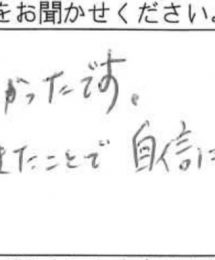 をお聞かせください。
かったです。
きたことで 自信に